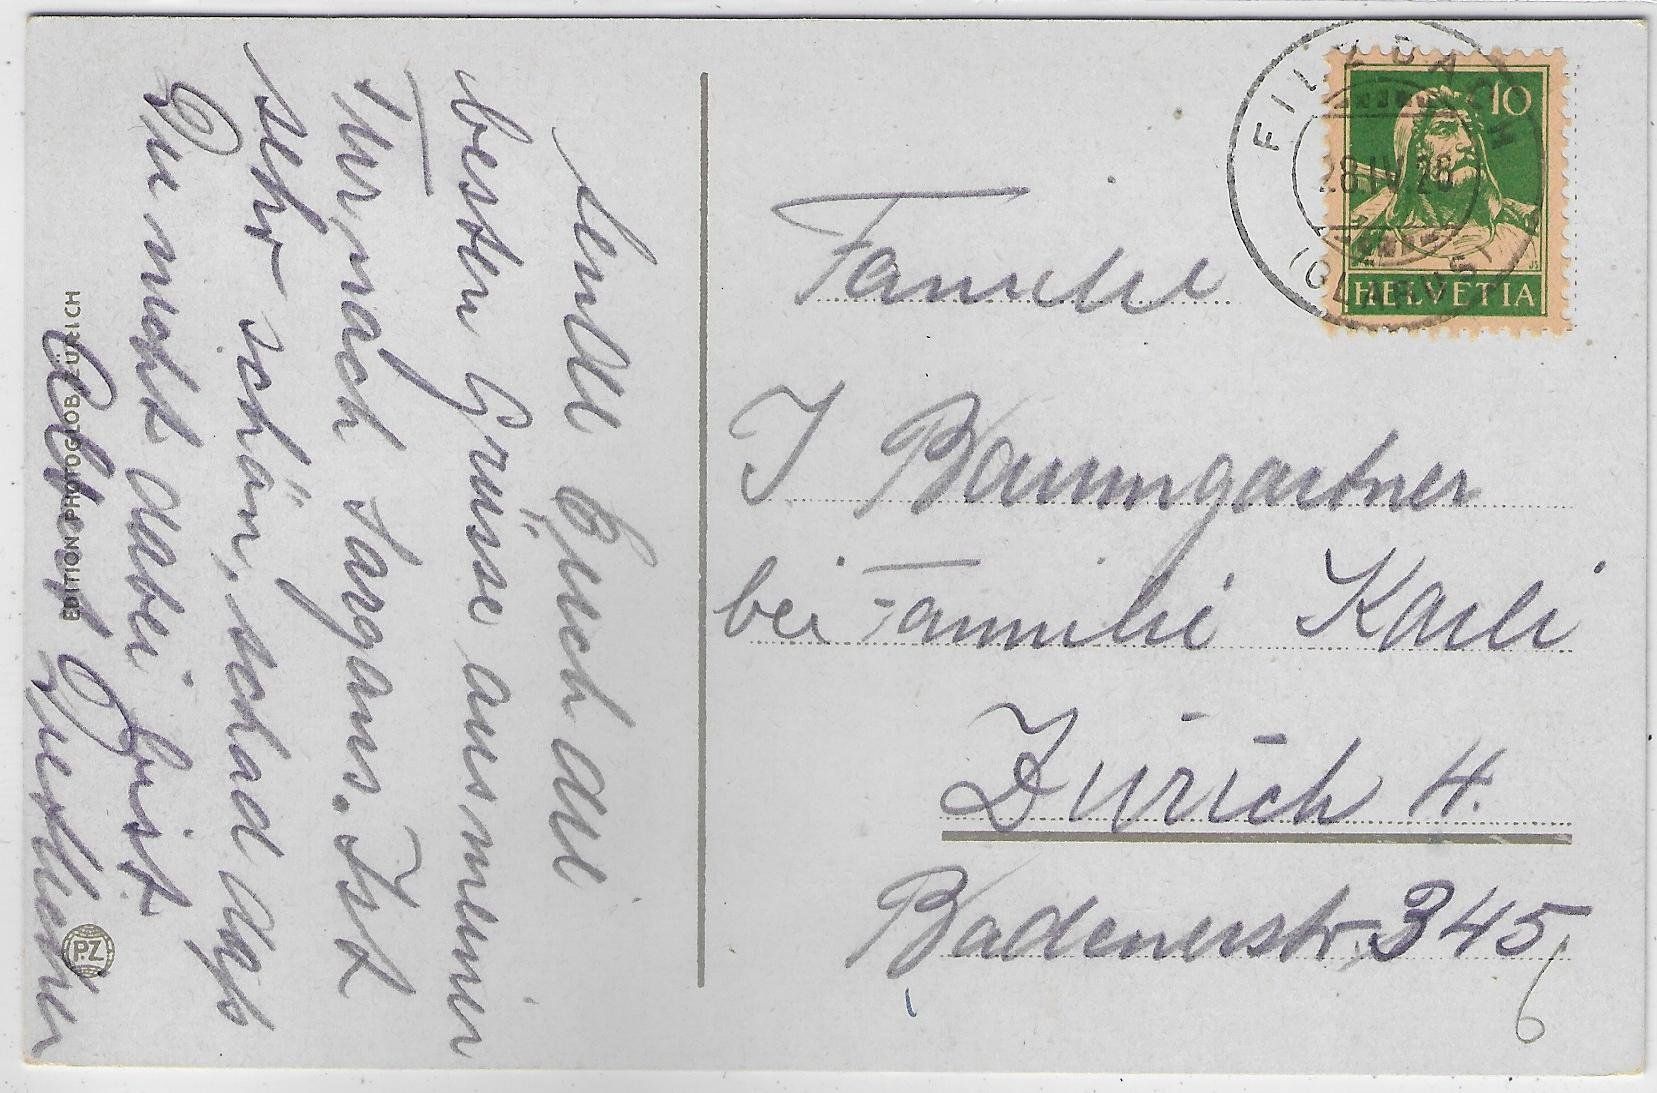 Sende Euch die
besten Grüsse aus meiner
Tur nach Sargans. Ist
sehr schön, schad dass
Du nicht dabei bist
Albert
EDITION PHOTOGLOB ZÜRICH
P.Z
FILZBACH
28.IV.28
(GLARUS)
10
HELVETIA
Familie
J Baumgartner
bei Familie Karli
Zürich 4.
Badenerstr. 345
6